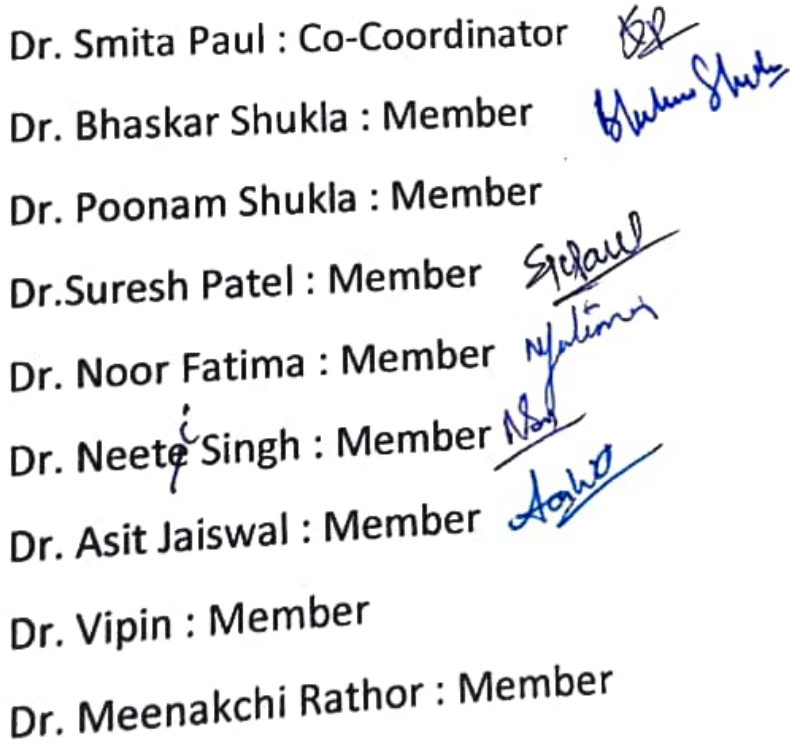 Dr. Smita Paul : Co-Coordinator
Dr. Bhaskar Shukla : Member Bhaskar Shukla
Dr. Poonam Shukla : Member
Dr.Suresh Patel : Member
Dr. Noor Fatima : Member Nfatima
Dr. Neeti Singh : Member
Dr. Asit Jaiswal : Member
Dr. Vipin : Member
Dr. Meenakchi Rathor : Member